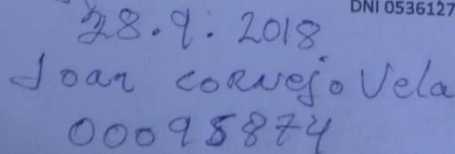 DNI 0536127
28.9.2018
Joan Cornejo Vela
00098874